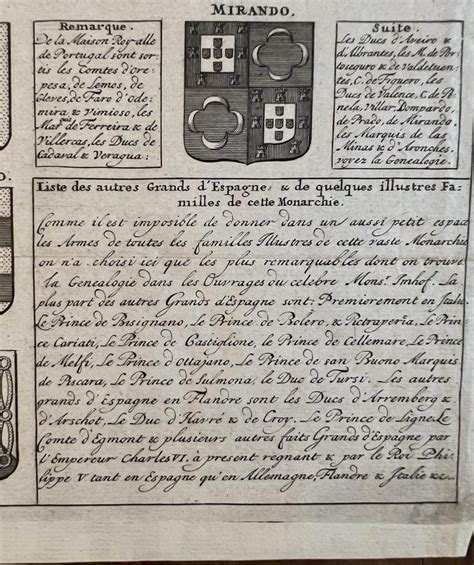 MIRANDO.
Remarque.
De la Maison Royalle
de Portugal sont sor-
tis les Comtes d'Ore-
pesa, de Lemos, de
Gleves, de Faro d'ode-
mira & Vimioso, les
Marq. de Ferreira & de
Villercas, les Ducs de
Cadaval & Veragua.
Suite.
Les Ducs d'Aveiro &
d'Albrantes, les M. de Por-
toseguro & de Valdefuen-
tes, C. de Figuero, les
Ducs de Valence, C. de Pe-
nela, Villar, Dompardo,
de Prado, de Mirando,
les Marquis de las
Minas & d'Aronches.
voyez la Genealogie.
O.
Liste des autres Grands d'Espagne, & de quelques illustres Fa-
milles de cette Monarchie.
Comme il est imposible de donner dans un aussi petit espace
les Armes de toutes les familles Illustres de cette vaste Monarchie
on n'a choisi ici que les plus remarquables dont on trouve
la Genealogie dans les Ouvrages du celebre Mons.r Imhof. La
plus part des autres Grands d'Espagne sont. Premierement en Italie
Le Prince de Bisignano, Le Prince de Bolero, & Pietraperia, Le Prin-
ce Cariati, Le Prince de Castiglione, le Prince de Cellemare, Le Prince
de Melfi, Le Prince d'Ouajano, Le Prince de san Buono Marquis
de Pescara, Le Prince de Sulmona, le Duc de Tursi. Les autres
grands d'Espagne en Flandre sont les Ducs d'Arremberg &
d'Arschot, Le Duc d'Havré & de Croy. Le Prince de Ligne, Le
Comte d'Egmont & plusieurs autres faits Grands d'Espagne par
l'Empereur Charles VI, à present regnant & par le Roi Phi-
lippe V tant en Espagne qu'en Allemagne, Flandre & Italie &c.